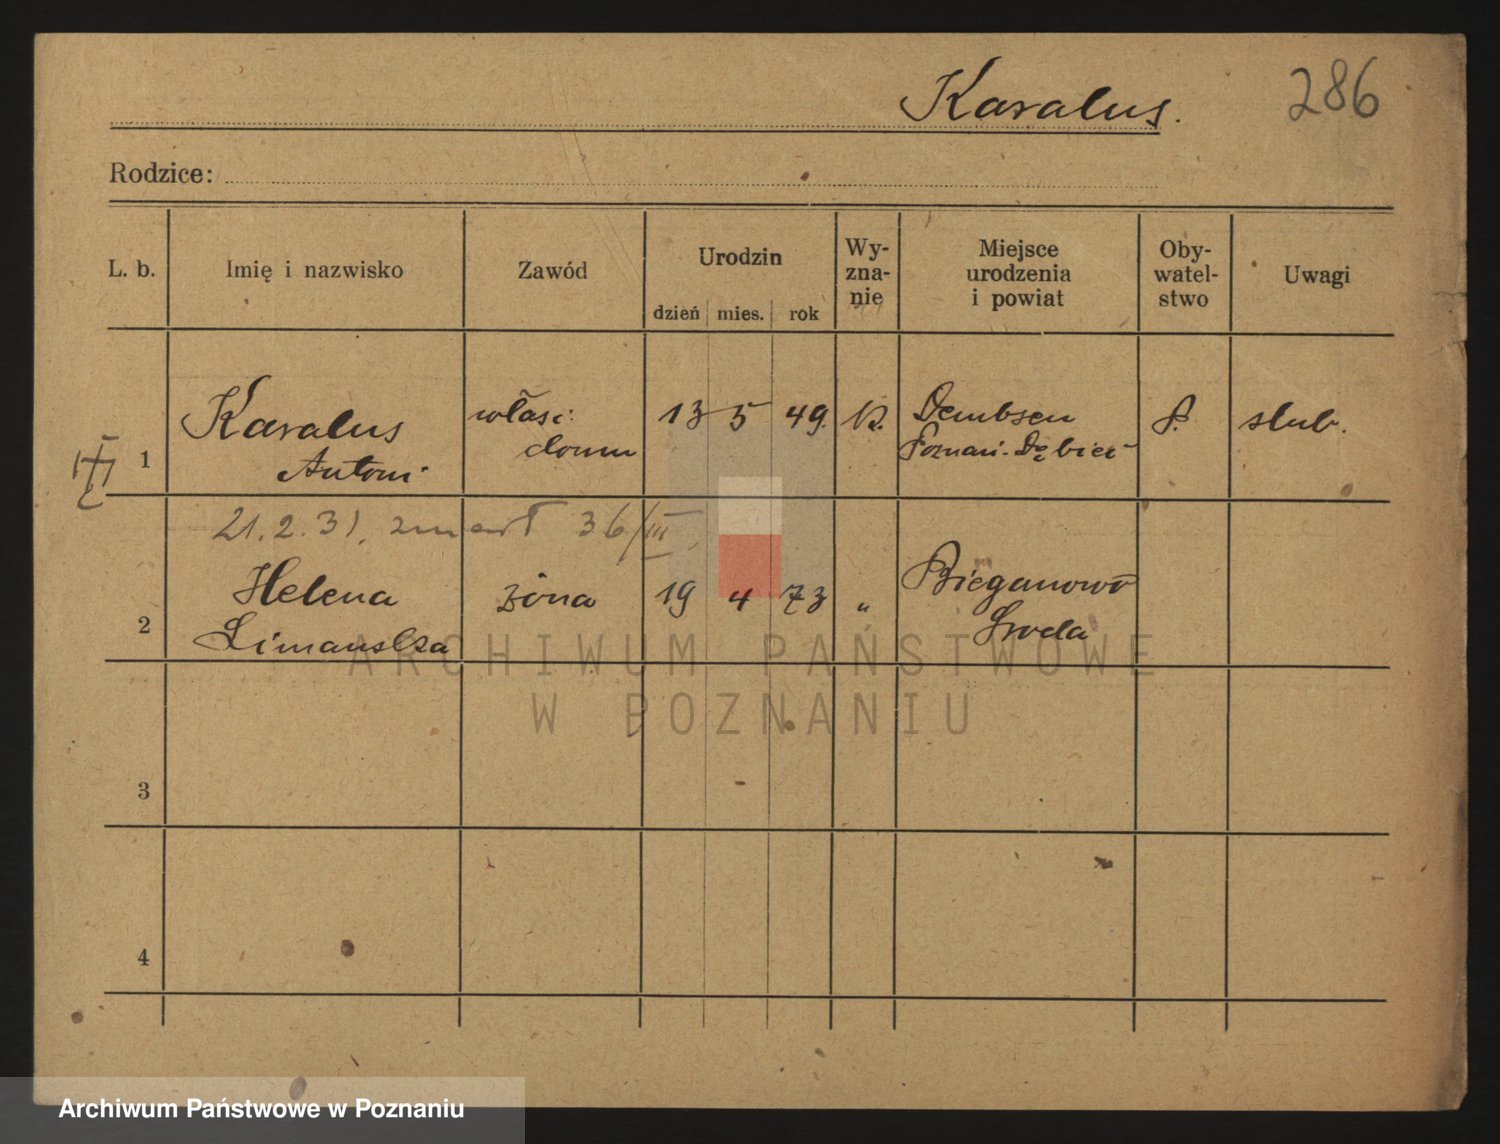 Karalus.
286
Rodzice:
L. b.
Imię i nazwisko
Zawód
Urodzin
dzień mies. rok
Wy-
zna-
nie
Miejsce
urodzenia
i powiat
Oby-
watel-
stwo
Uwagi
1
Karalus
Antoni
właśc:
domu
13 5 49.
K.
Dembsen
Poznań-Dębiec
P.
slub.
21.2.31. zmarł 36/III
2
Helena
Limanska
żona
19 4 73
"
Bieganowo
Sroda
3
4
ARCHIWUM PAŃSTWOWE
W POZNANIU
Archiwum Państwowe w Poznaniu